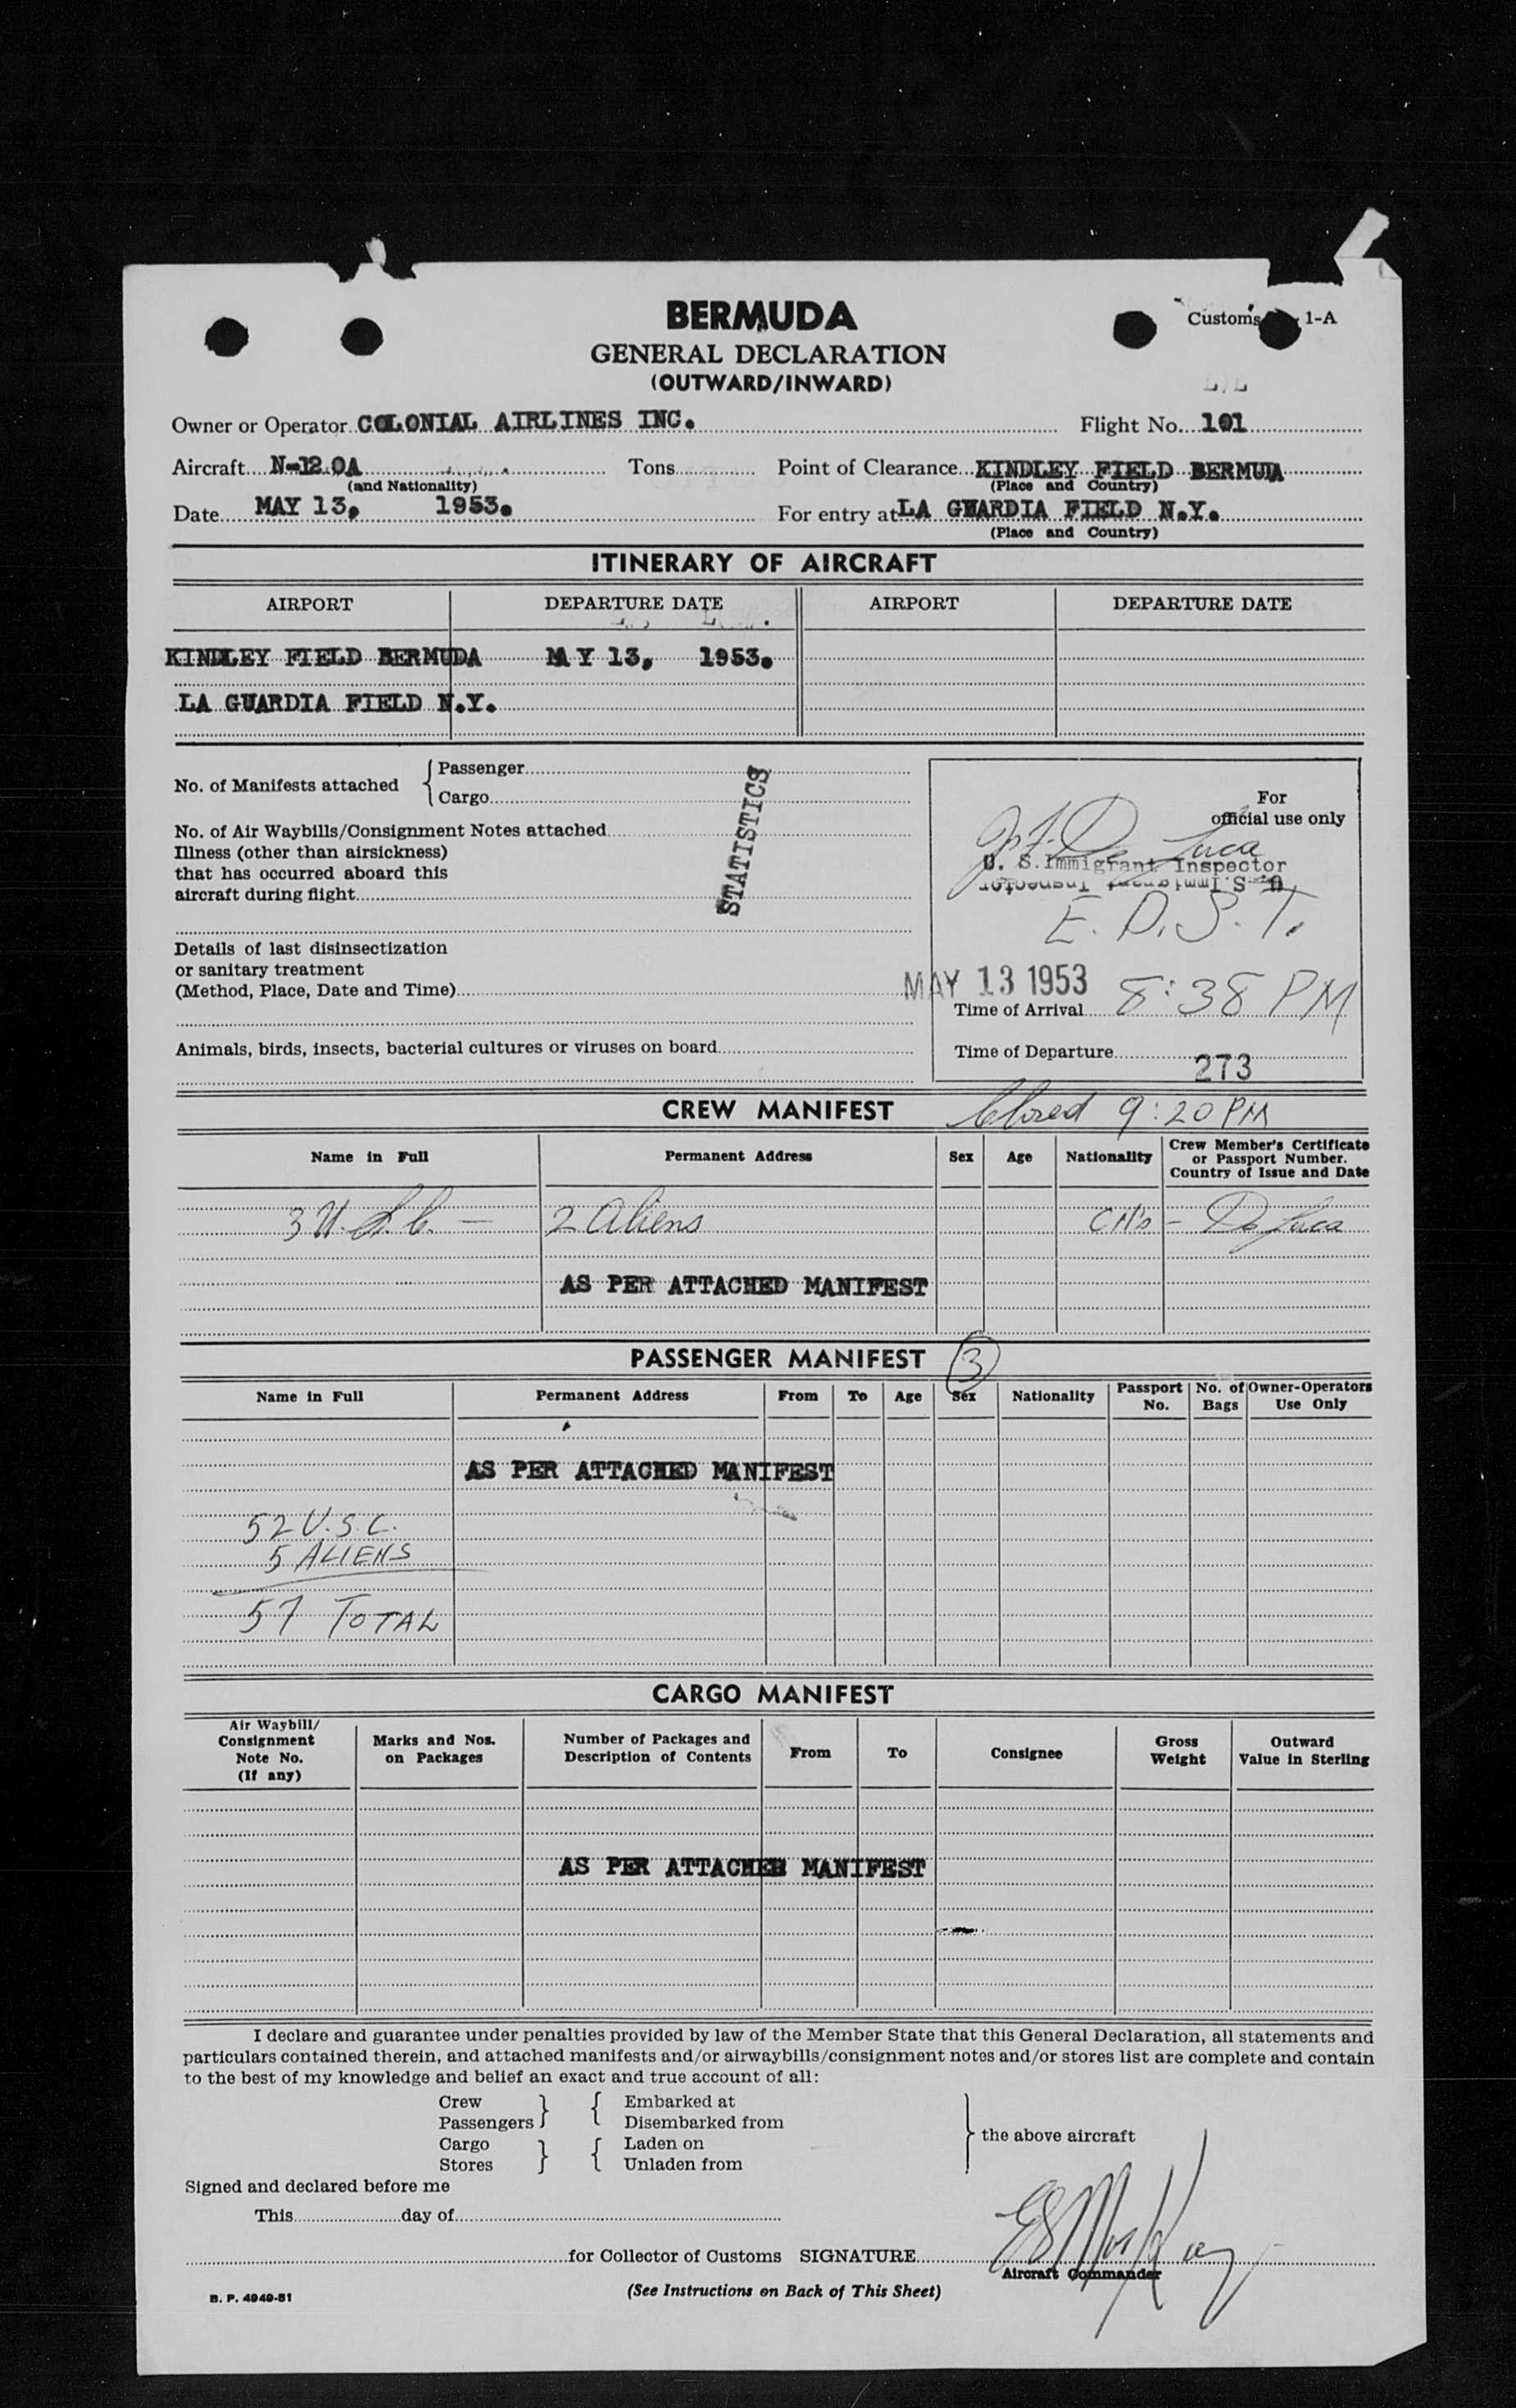 BERMUDA
Customs 1-A
GENERAL DECLARATION
(OUTWARD/INWARD)
Owner or Operator COLONIAL AIRLINES INC. Flight No. 101
Aircraft N-12 0A Tons Point of Clearance KINDLEY FIELD BERMUDA
(and Nationality) (Place and Country)
Date MAY 13, 1953. For entry at LA GUARDIA FIELD N.Y.
(Place and Country)
ITINERARY OF AIRCRAFT
AIRPORT DEPARTURE DATE AIRPORT DEPARTURE DATE
KINDLEY FIELD BERMUDA MAY 13, 1953.
LA GUARDIA FIELD N.Y.
No. of Manifests attached { Passenger
Cargo
No. of Air Waybills/Consignment Notes attached
Illness (other than airsickness)
that has occurred aboard this
aircraft during flight
STATISTICS
Details of last disinsectization
or sanitary treatment
(Method, Place, Date and Time)
Animals, birds, insects, bacterial cultures or viruses on board
For
official use only
De Luca
U. S. Immigrant Inspector
U. S. Immigrant Inspector
E.D.S.T.
MAY 13 1953
Time of Arrival 8:38 PM
Time of Departure
273
CREW MANIFEST Closed 9:20 PM
Name in Full Permanent Address Sex Age Nationality Crew Member's Certificate or Passport Number. Country of Issue and Date
3 U.S.C. — 2 Aliens CM's - De Luca
AS PER ATTACHED MANIFEST
PASSENGER MANIFEST 3
Name in Full Permanent Address From To Age Sex Nationality Passport No. No. of Bags Owner-Operators Use Only
AS PER ATTACHED MANIFEST
52 U.S.C.
5 ALIENS
57 TOTAL
CARGO MANIFEST
Air Waybill/ Consignment Note No. (If any) Marks and Nos. on Packages Number of Packages and Description of Contents From To Consignee Gross Weight Outward Value in Sterling
AS PER ATTACHED MANIFEST
I declare and guarantee under penalties provided by law of the Member State that this General Declaration, all statements and
particulars contained therein, and attached manifests and/or airwaybills/consignment notes and/or stores list are complete and contain
to the best of my knowledge and belief an exact and true account of all:
Crew } { Embarked at
Passengers Disembarked from
Cargo } { Laden on } the above aircraft
Stores Unladen from
Signed and declared before me
This day of
for Collector of Customs SIGNATURE
Aircraft Commander
(See Instructions on Back of This Sheet)
B. P. 4949-51